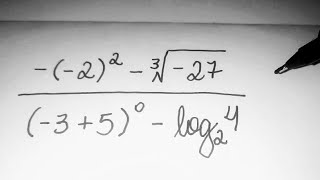 -(-2)² - ∛-27
(-3+5)⁰ - log₂4